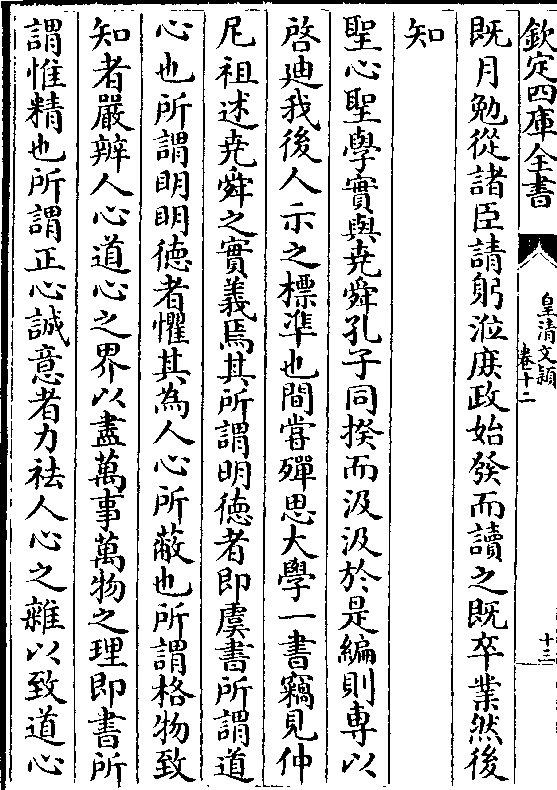 欽定四庫全書
皇清文穎
卷十二
十三
既月勉從諸臣請躬涖庶政始發而讀之既卒業然後
知
聖心聖學實與堯舜孔子同揆而汲汲於是編則専以
啓廸我後人示之標準也間嘗殫思大學一書竊見仲
尼祖述堯舜之實義焉其所謂明德者即虞書所謂道
心也所謂明明德者懼其為人心所蔽也所謂格物致
知者嚴辨人心道心之界以盡萬事萬物之理即書所
謂惟精也所謂正心誠意者力袪人心之雜以致道心